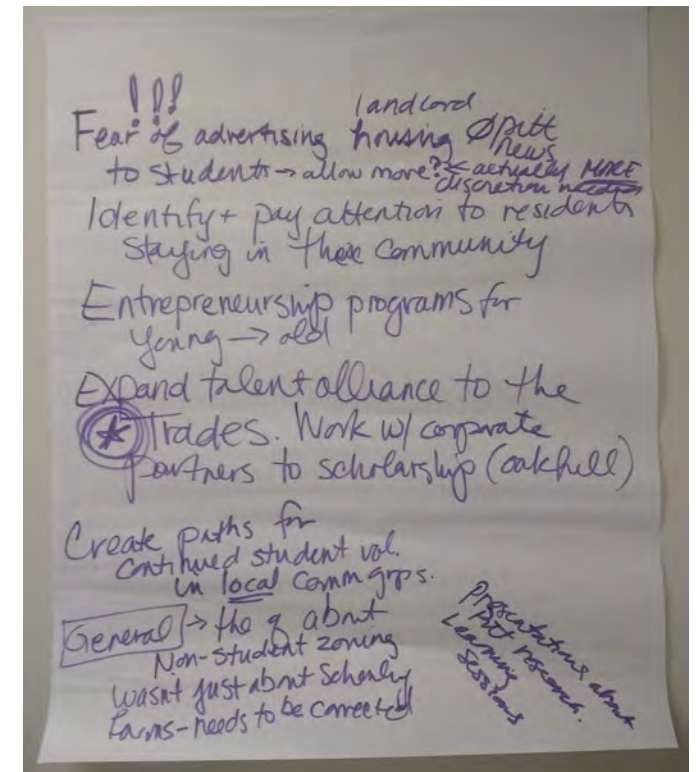 !!!
landlord
Fear of advertising housing Ø pitt
news
to students → allow more? ← actually MORE
discretion needed
Identify + pay attention to residents
staying in their community
Entrepreneurship programs for
young → old
Expand talent alliance to the
* Trades. Work w/ corporate
partners to scholarship (oakhill)
Create paths for
continued student vol.
in local comm grps.
General → the q about
Non-student zoning
wasn't just about Schenley
Farms - needs to be corrected
Presentations about
pitt research.
Learning
sessions